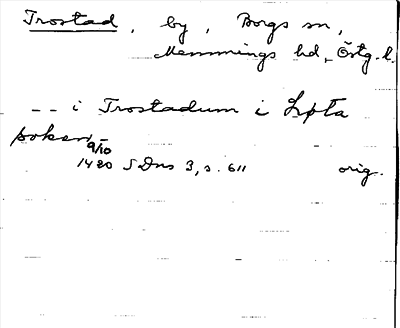 Trostad, by, Borgs sn,
Memmings hd, Östg. l.
-- i Trostadum i Løsta
soken
9/10
1420 SDns 3, s. 611 orig.